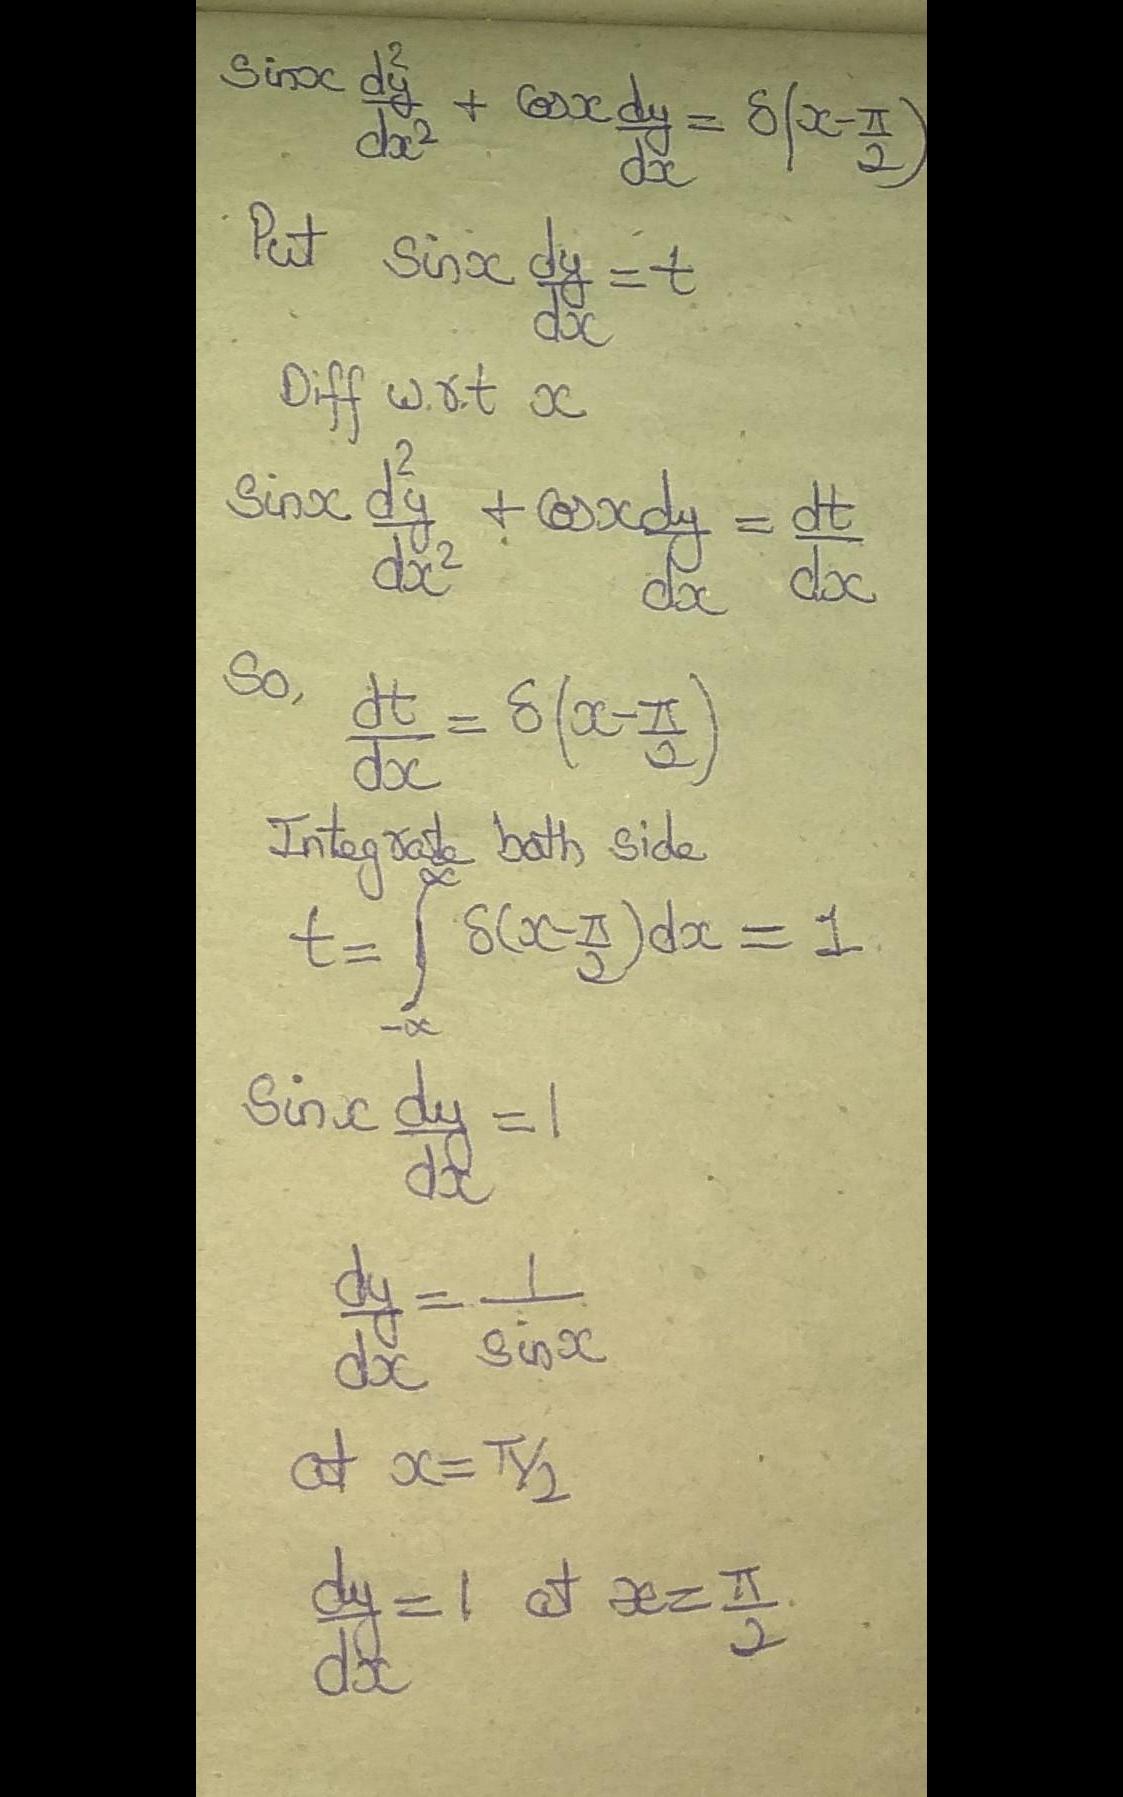 sinx d²y/dx² + cosx dy/dx = δ(x-π/2)
Put sinx dy/dx = t
Diff w.r.t x
sinx d²y/dx² + cosx dy/dx = dt/dx
So, dt/dx = δ(x-π/2)
Integrate both side
t = ∫_{-∞}^{∞} δ(x-π/2)dx = 1
sinx dy/dx = 1
dy/dx = 1/sinx
at x = π/2
dy/dx = 1 at x = π/2